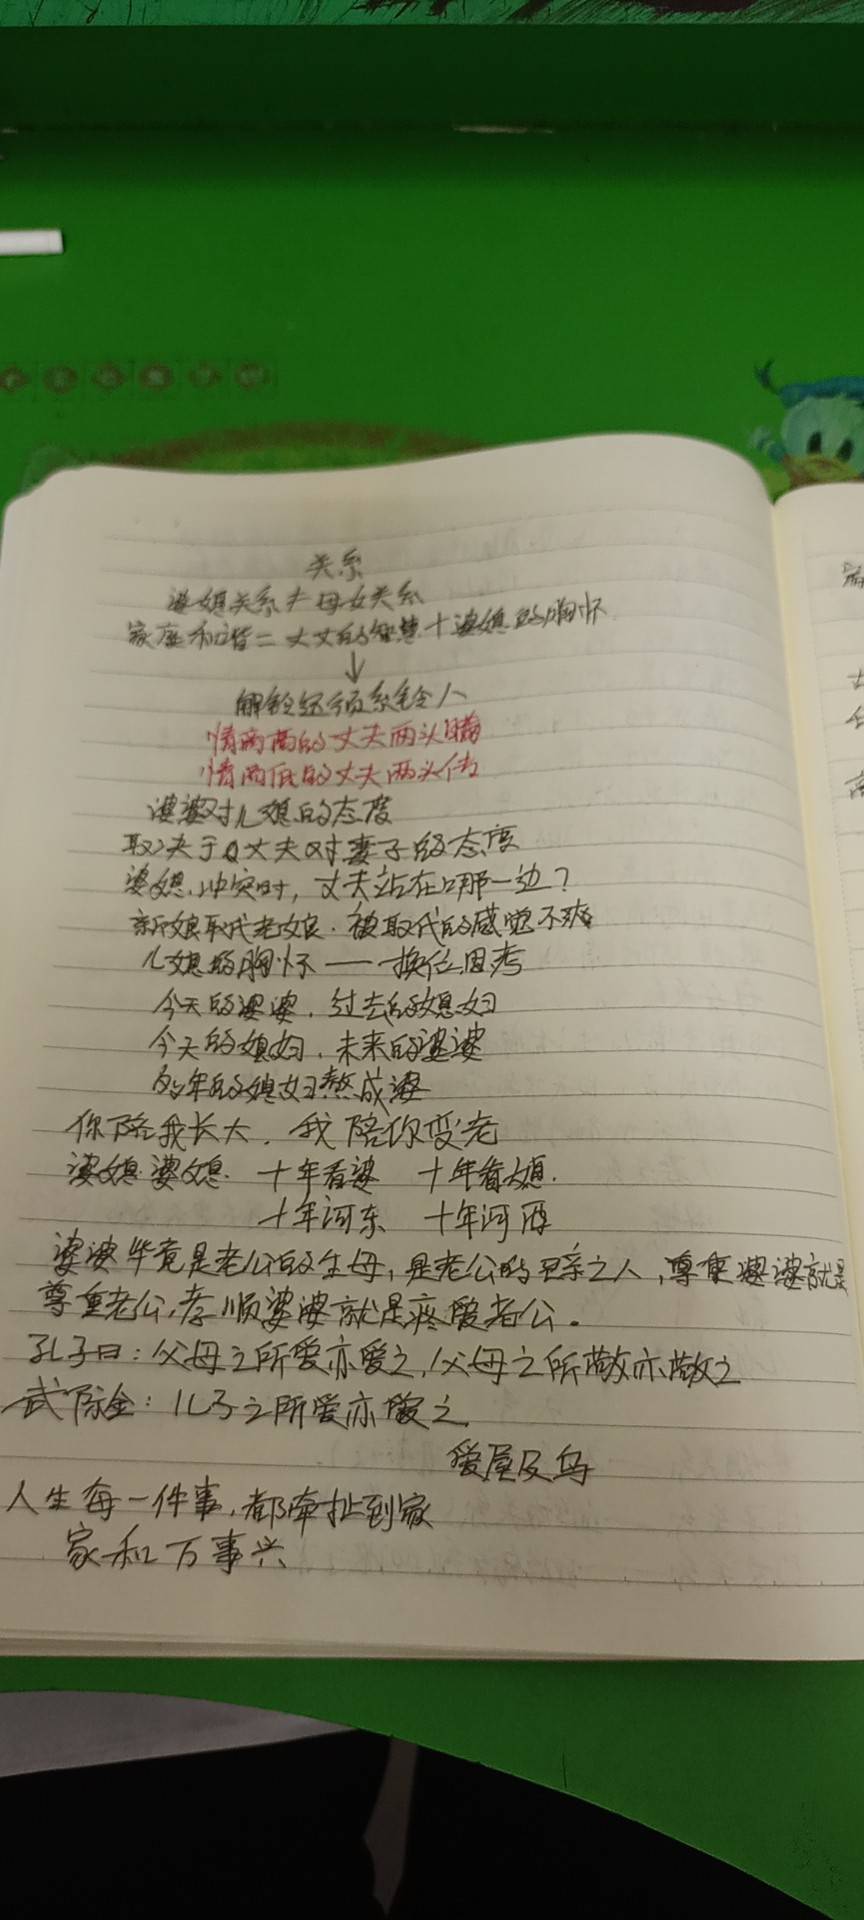 关系
婆媳关系≠母女关系
家庭和谐=丈夫的智慧+婆媳的胸怀
↓
解铃还须系铃人
情商高的丈夫两头瞒
情商低的丈夫两头传
婆婆对儿媳的态度
取决于丈夫对妻子的态度
婆媳冲突时，丈夫站在哪一边？
新娘取代老娘．被取代的感觉不爽
儿媳的胸怀——换位思考
今天的婆婆．过去的媳妇
今天的媳妇．未来的婆婆
多年的媳妇熬成婆
你陪我长大．我陪你变老
婆媳婆媳．十年看婆 十年看媳．
十年河东 十年河西
婆婆毕竟是老公的生母，是老公的至亲之人，尊重婆婆就是
尊重老公，孝顺婆婆就是疼爱老公。
孔子曰：父母之所爱亦爱之，父母之所敬亦敬之
武际金：儿子之所爱亦爱之
爱屋及乌
人生每一件事，都牵扯到家
家和万事兴